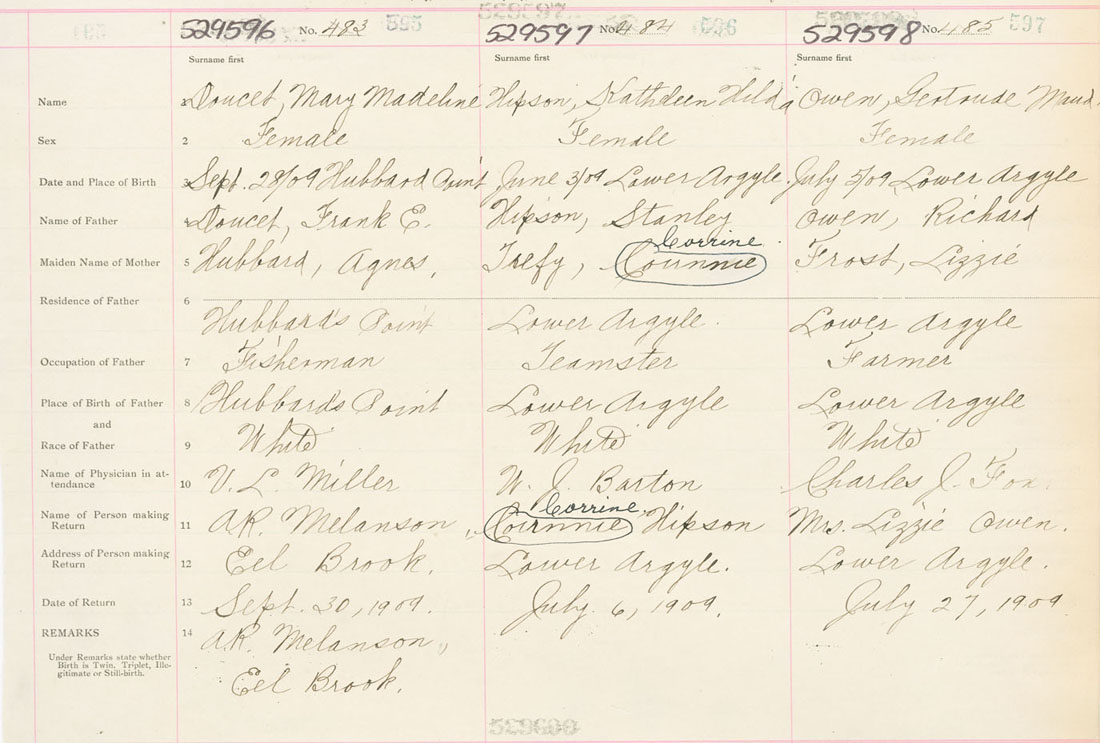 529596 No. 483 595 529597 No. 484 596 529598 No. 485 597
Surname first Surname first Surname first
Name 1 Doucet, Mary Madeline Hipson, Kathleen Hilda Owen, Gertrude Maud
Sex 2 Female Female Female
Date and Place of Birth 3 Sept. 28/09 Hubbard Point June 3/09 Lower Argyle. July 5/09 Lower Argyle
Name of Father 4 Doucet, Frank E. Hipson, Stanley Owen, Richard
Corrine
Maiden Name of Mother 5 Hubbard, Agnes, Trefy, Counnie Frost, Lizzie
Residence of Father 6
Hubbard's Point Lower Argyle. Lower Argyle
Occupation of Father 7 Fisherman Teamster Farmer
Place of Birth of Father 8 Hubbard's Point Lower Argyle Lower Argyle
and
Race of Father 9 White White White
Name of Physician in at-
tendance 10 V. L. Miller W. J. Barton Charles J. Fox.
Corrine
Name of Person making
Return 11 A.R. Melanson, Counnie Hipson Mrs. Lizzie Owen.
Address of Person making
Return 12 Eel Brook. Lower Argyle. Lower Argyle.
Date of Return 13 Sept. 30, 1909. July 6, 1909. July 27, 1909
REMARKS 14 A.R. Melanson,
Under Remarks state whether
Birth is Twin, Triplet, Ille-
gitimate or Still-birth.
Eel Brook.